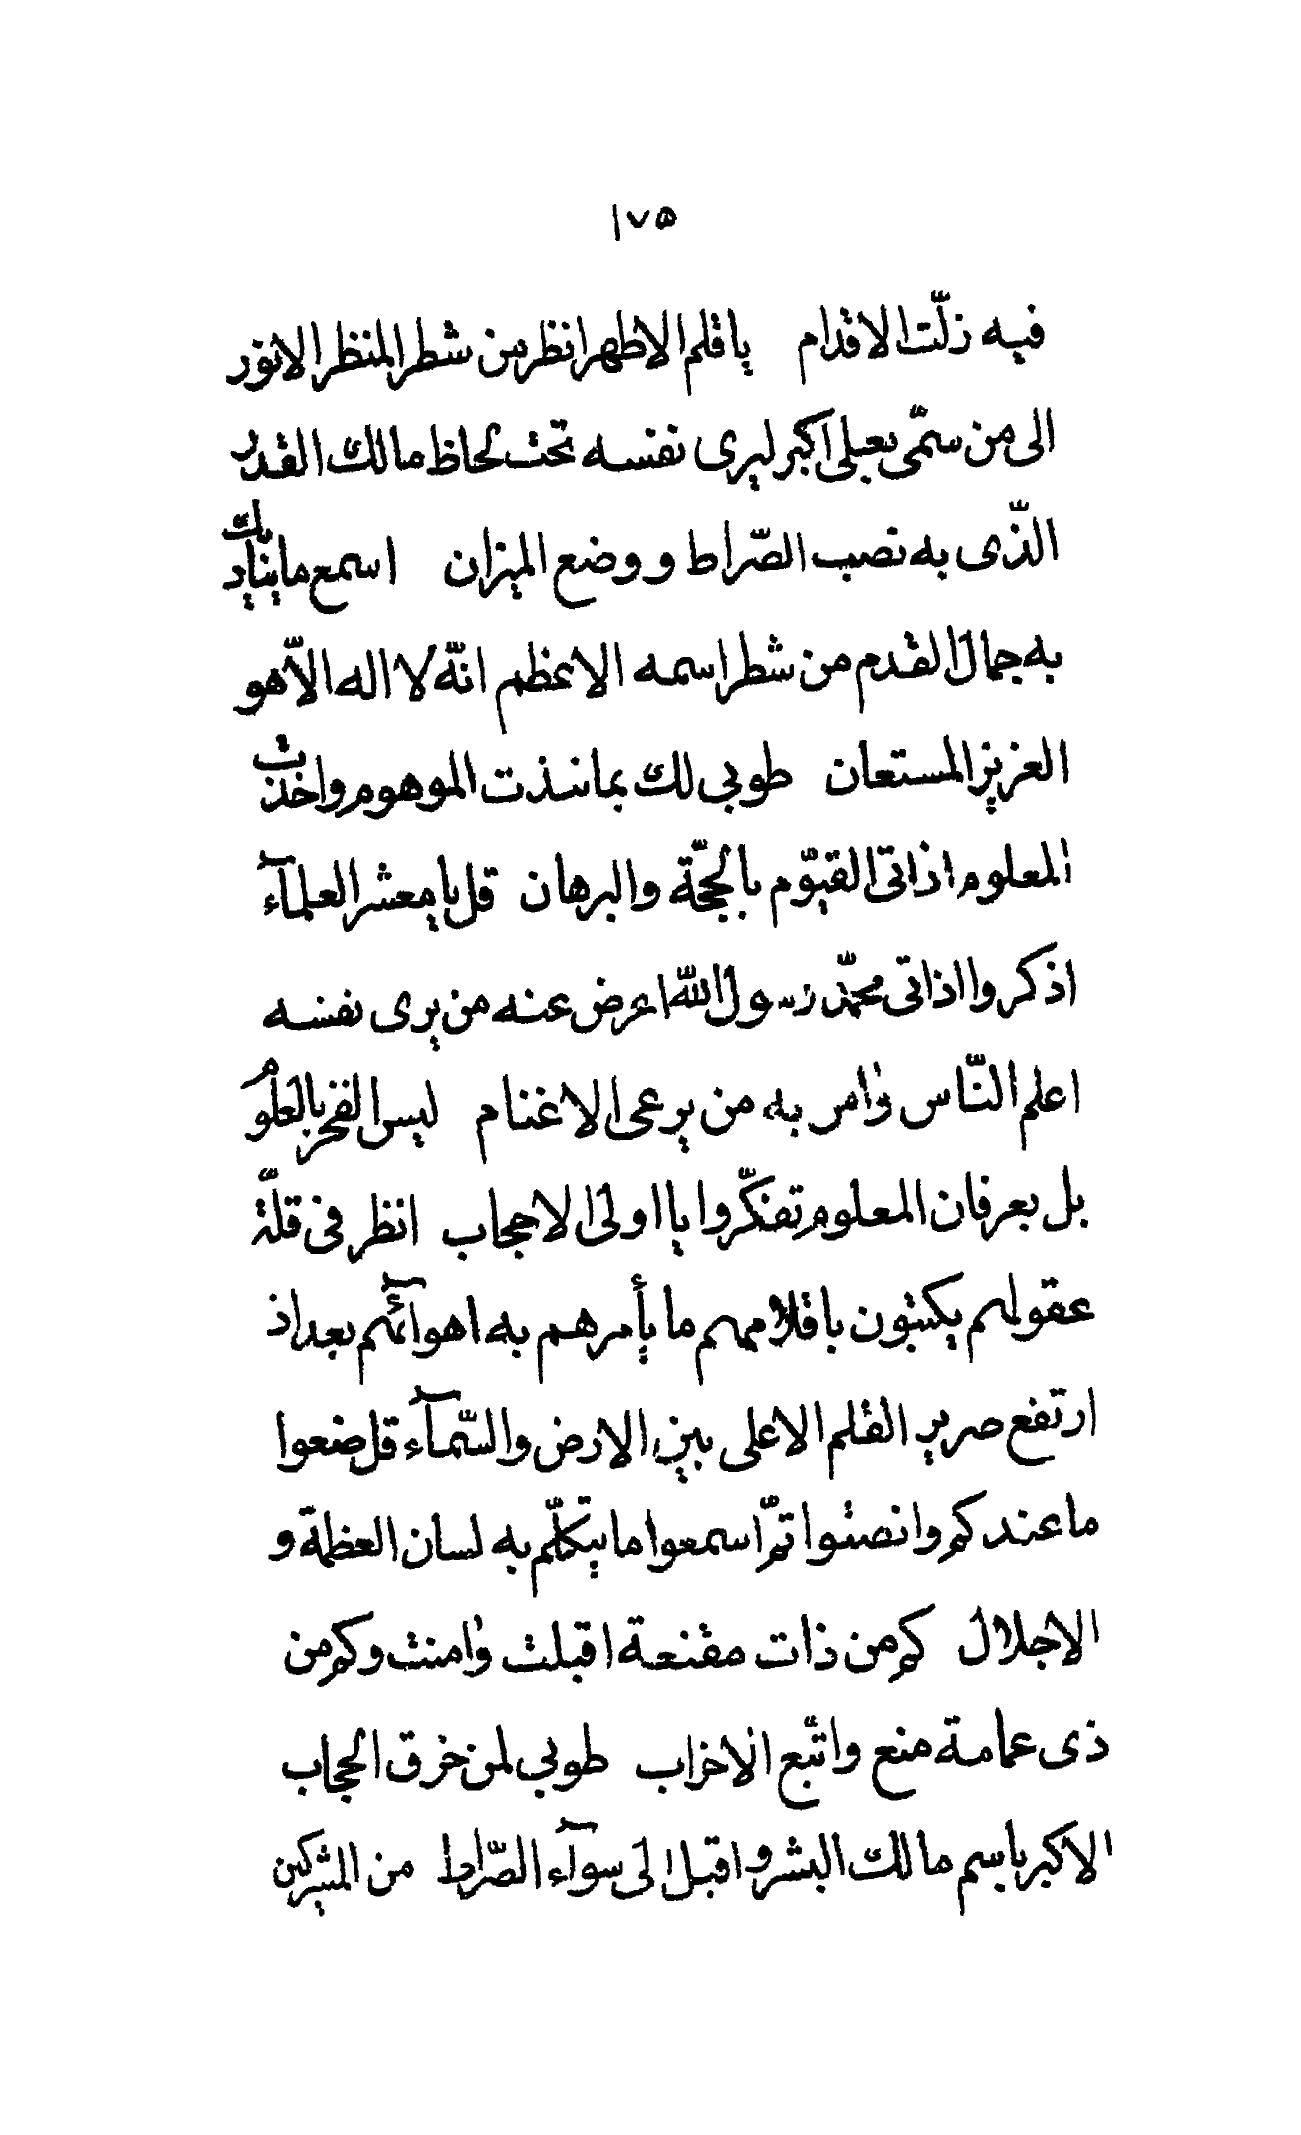 ١٧٥
فيه زلّت الاقدام يا قلم الاطهر انظر من شطر المنظر الانور
الى من سمّى بعلى اكبر ليرى نفسه تحت لحاظ مالك القدر
الّذى به نصب الصّراط و وضع الميزان اسمع ما يناديك
به جمال القدم من شطر اسمه الاعظم انّه لا اله الّا هو
العزيز المستعان طوبى لك بما نبذت الموهوم و اخذت
المعلوم اذ اتى القيّوم بالحجّة و البرهان قل يا معشر العلمآء
اذكروا اذ اتى محمّد رسول اللّه اعرض عنه من يرى نفسه
اعلم النّاس وامن به من يرعى الاغنام ليس الفخر بالعلوم
بل بعرفان المعلوم تفكّروا يا اولى الاحجاب انظر فى قلّة
عقولهم يكتبون باقلامهم ما يأمرهم به اهوآئهم بعد اذ
ارتفع صرير القلم الاعلى بين الارض و السّمآء قل ضعوا
ما عندكم و انصتوا ثمّ اسمعوا ما يتكلّم به لسان العظمة و
الاجلال كم من ذات مقنعة اقبلت وامنت و كم من
ذى عمامة منع و اتّبع الاحزاب طوبى لمن خرق الحجاب
الاكبر باسم مالك البشر و اقبل الى سوآء الصّراط من المشركين